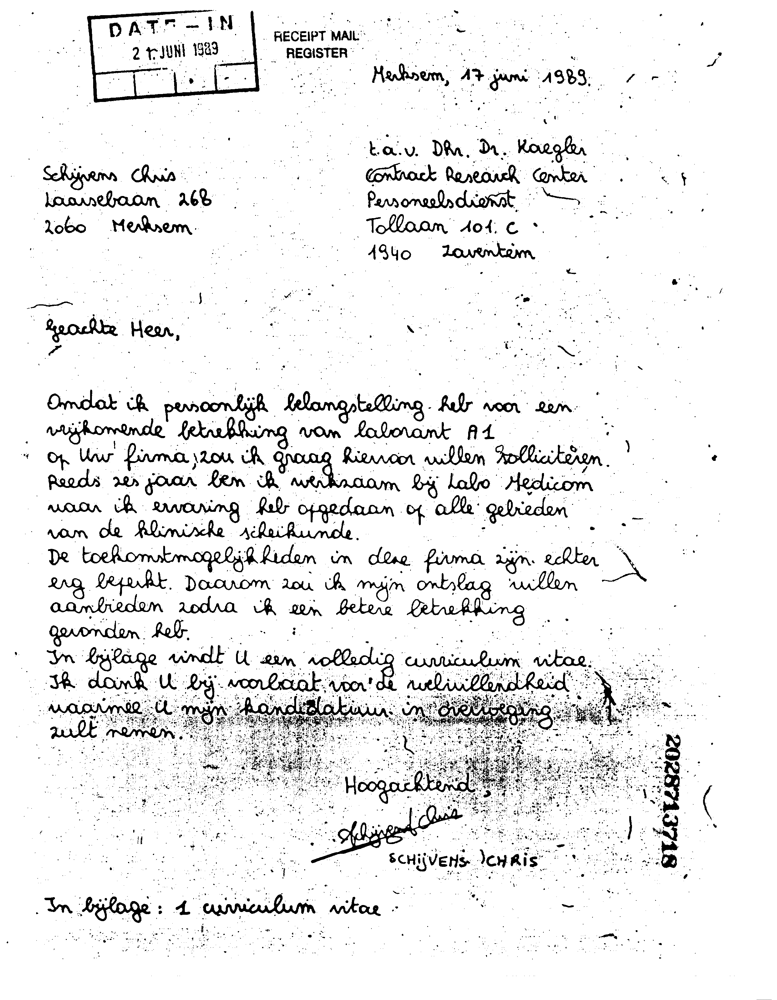 DATE-IN
21 JUNI 1989
RECEIPT MAIL
REGISTER
Merksem, 17 juni 1989.
t.a.v. Dhr. Dr. Kaegler
Contract Research Center
Personeelsdienst
Tollaan 101. C
1940 Zaventem
Schijvens Chris
Laarsebaan 268
2060 Merksem
Geachte Heer,
Omdat ik persoonlijk belangstelling heb voor een
vrijkomende betrekking van laborant A1
op Uw firma, zou ik graag hiervoor willen solliciteren.
Reeds zes jaar ben ik werkzaam bij Labo Medicom
waar ik ervaring heb opgedaan op alle gebieden
van de klinische scheikunde.
De toekomstmogelijkheden in deze firma zijn echter
erg beperkt. Daarom zou ik mijn ontslag willen
aanbieden zodra ik een betere betrekking
gevonden heb.
In bijlage vindt U een volledig curriculum vitae.
Ik dank U bij voorbaat voor de welwillendheid
waarmee U mijn kandidatuur in overweging
zult nemen.
Hoogachtend,
Schijvens Chris
SCHIJVENS CHRIS
In bijlage: 1 curriculum vitae
2028713718